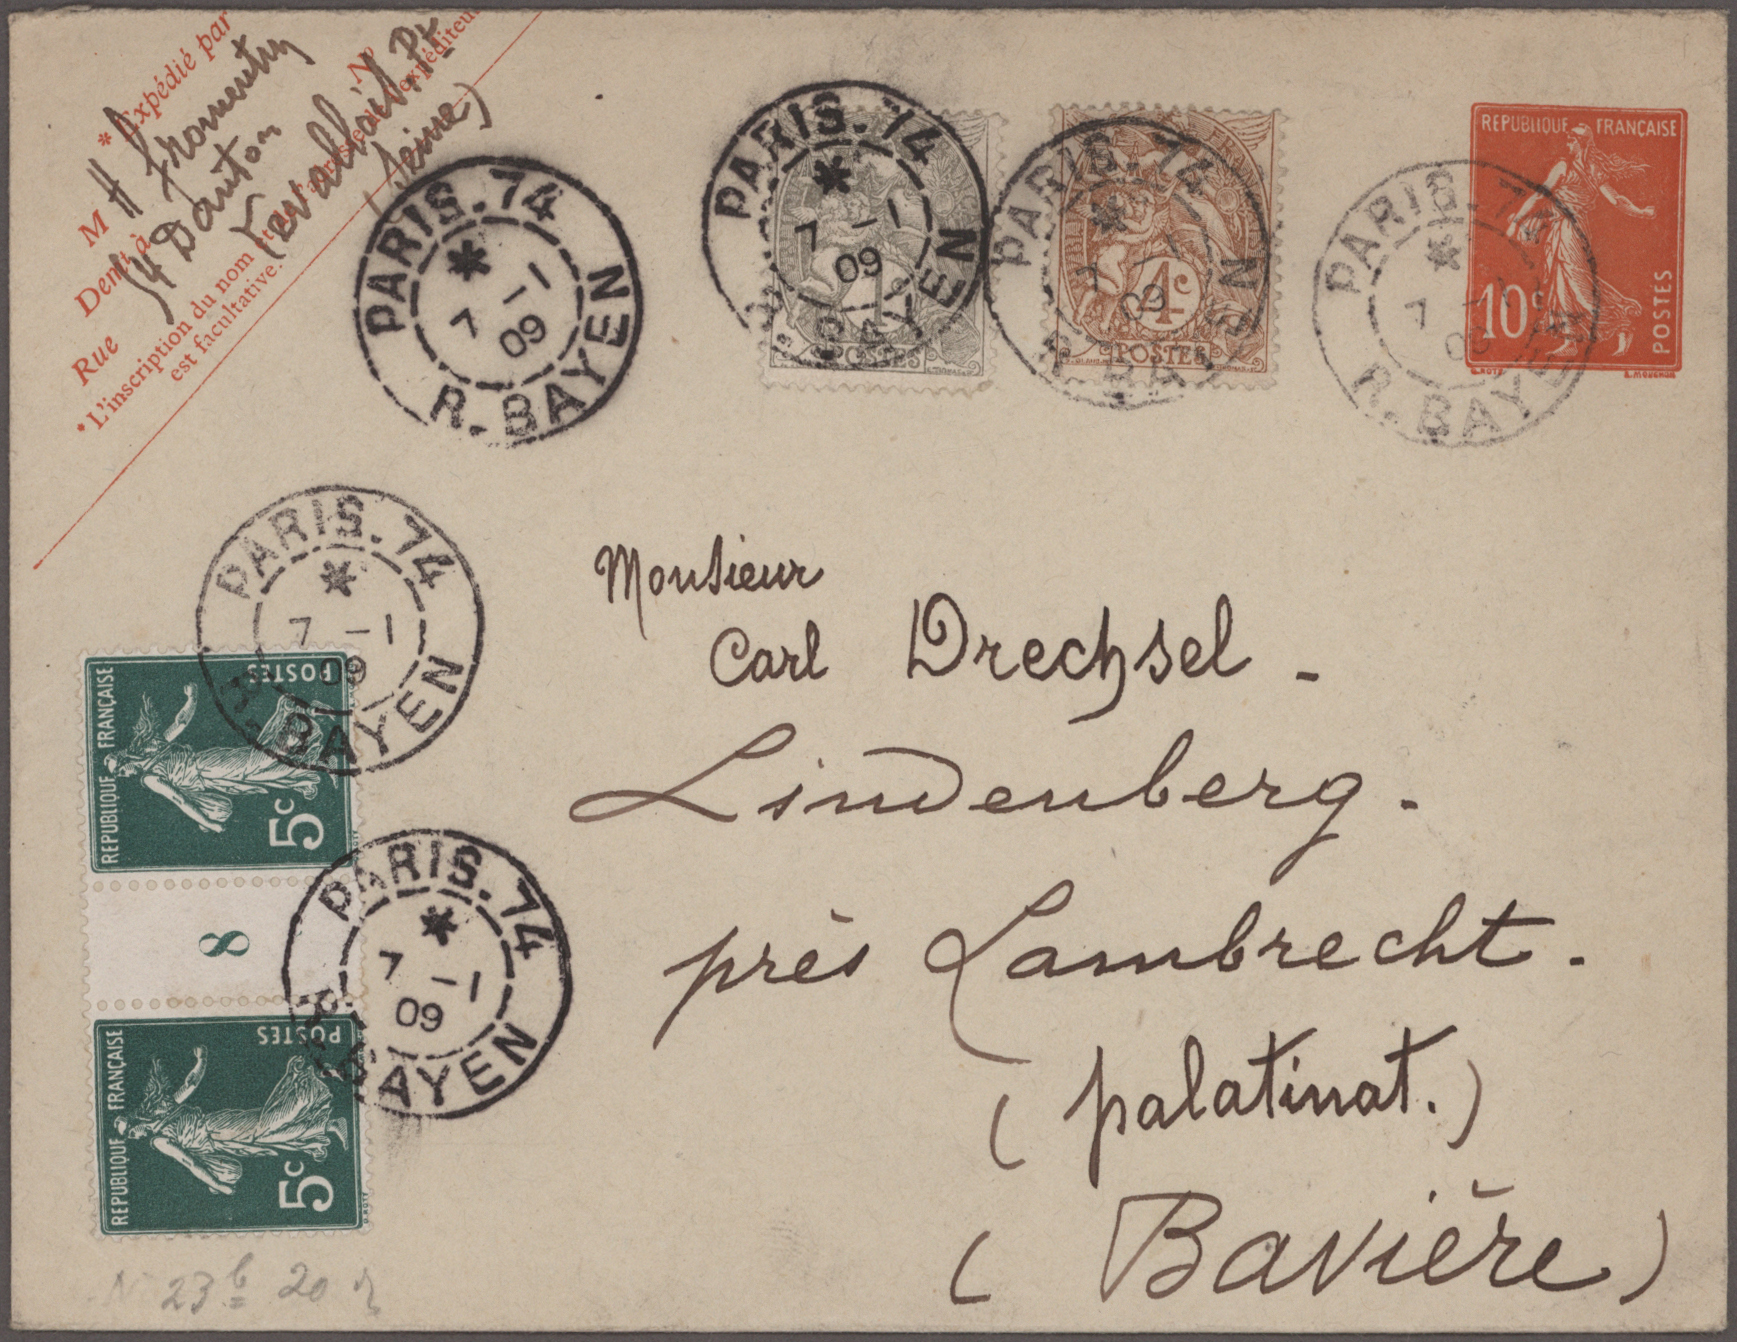 * Expédié par
M H Fromentin
Demt à 54 Danton
Rue Levallois-Pt
(Seine)
* L'inscription du nom et de l'adresse de l'expéditeur
est facultative.
Nº
PARIS.74
* 7 -1
09
R. BAYEN
PARIS.74
* 7 -1
09
R. BAYEN
1c
POSTES
PARIS.74
* 7 -1
09
R. BAYEN
4c
POSTES
PARIS.74
* 7 -1
09
R. BAYEN
REPUBLIQUE FRANÇAISE
10c
POSTES
O. ROTY
E. MOUCHON
PARIS.74
* 7 -1
09
R. BAYEN
REPUBLIQUE FRANÇAISE
POSTES
5c
8
PARIS.74
* 7 -1
09
R. BAYEN
REPUBLIQUE FRANÇAISE
POSTES
5c
Monsieur
Carl Drechsel -
Lindenberg.
près Lambrecht.
(palatinat.)
(Bavière)
N 23 b 20